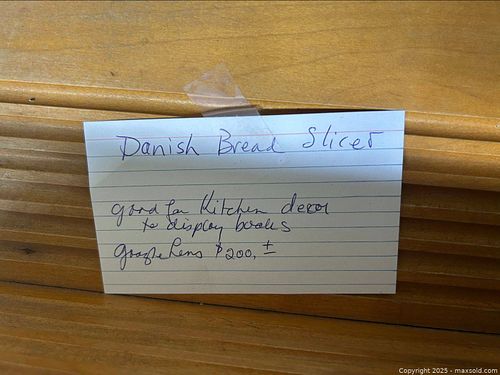 Danish Bread Slicer
good for Kitchen decor
to display books
Google Lens $200. ±
Copyright 2025 - maxsold.com